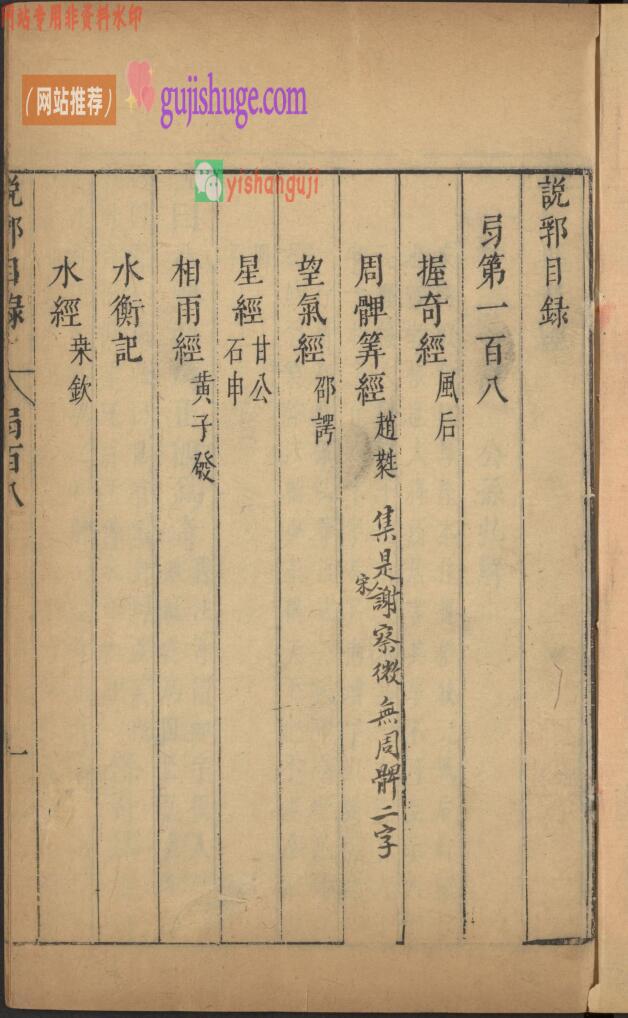 网站专用非资料水印
（网站推荐）
gujishuge.com
yishanguji
說郛目録
弓第一百八
握奇經 風后
周髀筭經 趙爽 集是宋人謝察微無周髀二字
望氣經 邵諤
星經 甘公 石申
相雨經 黄子發
水衡記
水經 桒欽
說郛目録 弓百八 一